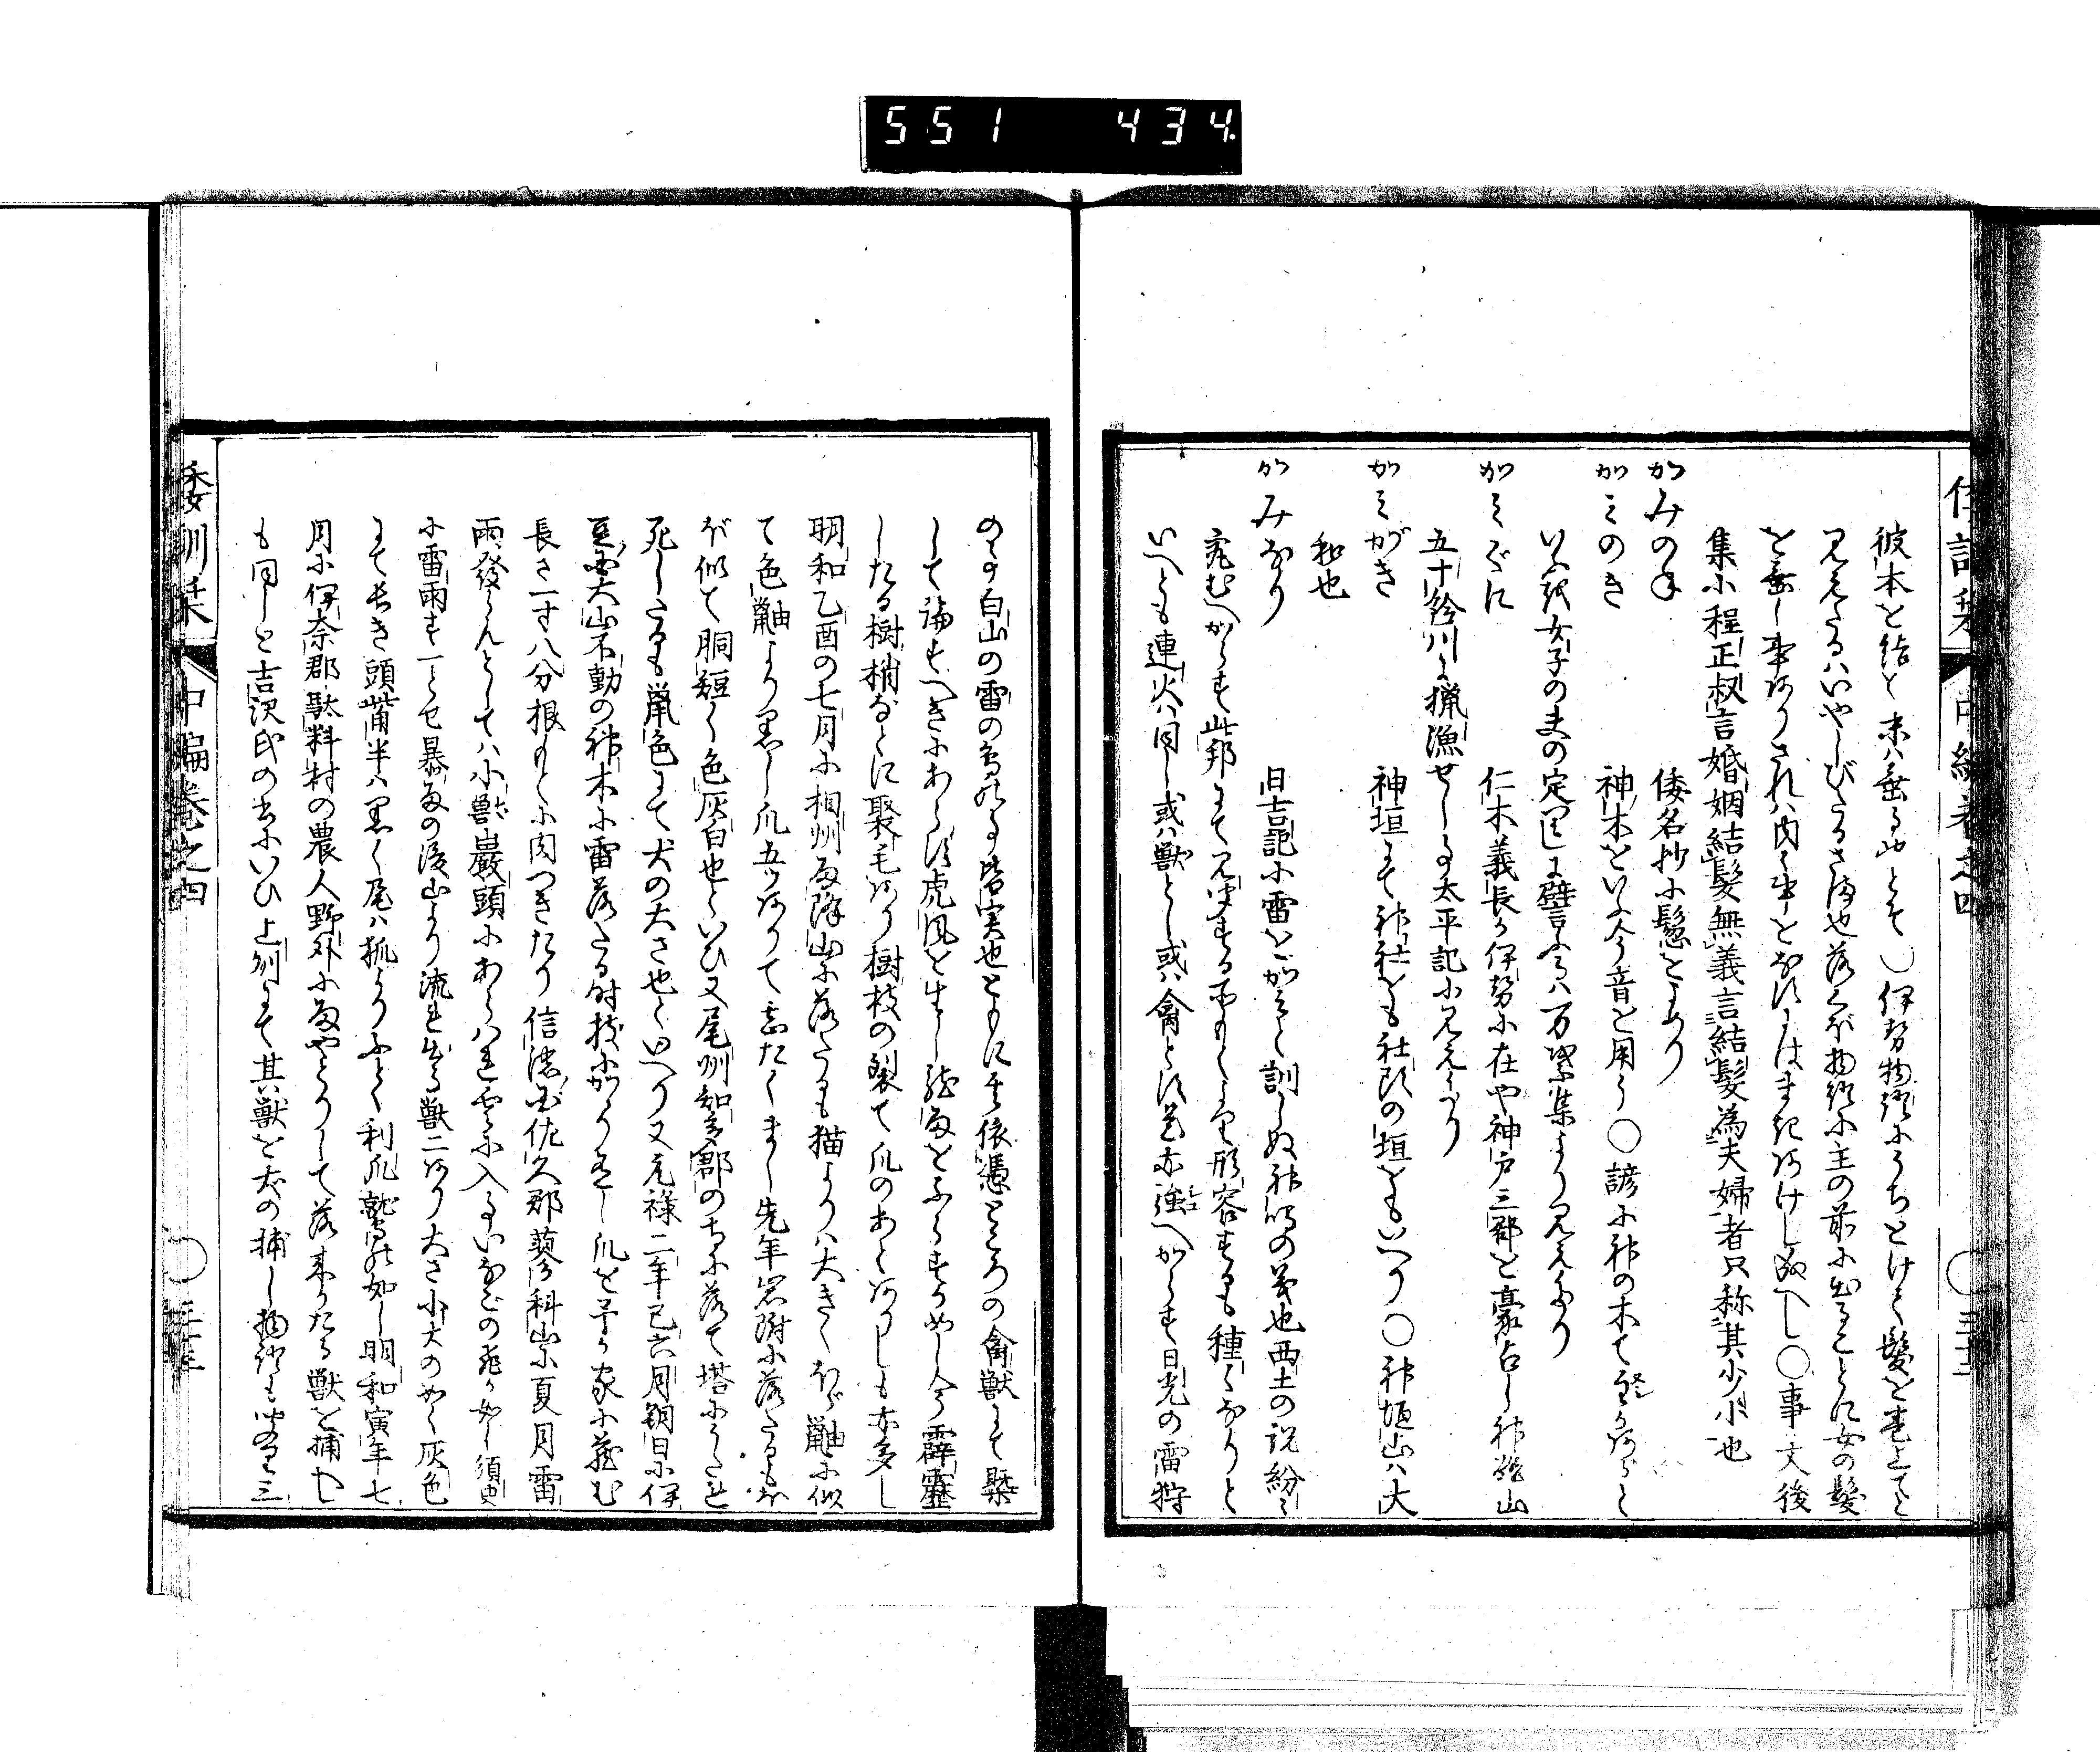 551 434.
倭訓栞 中編巻之四 ○ 三十二
彼本を結ひ末ハ垂る也とそ ○伊勢物語にうちとけて髪を巻上てと
見えたるハいやしびたるさま也落くぼ物語に主の前に出ることに女の髪
を垂し事ありされハ内々事となれはまきあけし成へし ○事文後
集に程正叔言婚姻結髪無義言結髪為夫婦者只称其少小也
かみのね 倭名抄に鬘をよめり
かミのき 神木をいふ今音を用う ○諺に神の木て
いふ説女子の夫の定まれるに譬ふるハ万葉集より見えたり
かミぐに 仁木義長か伊勢に在や神戸三郡を豪占し神路山
五十鈴川に猟漁せし事太平記に見えたり
かミがき 神垣にて神社をも社頭の垣をもいへり ○神垣山ハ大
和也
かみなり 日吉記に雷をかみと訓しぬ神鳴の義也西土の説紛々
究むへからす此邦にて見聞する所もまた形容するも種々なりと
いへとも連火ハ同し或ハ獣とし或ハ禽とす是亦強へからす日光の雷狩
のこと白山の雷の鳥の事皆実也ともに其依憑ところの禽獣にて槩
して論すへきにあらす虎風を生し龍雨をふらすかめし今霹靂
したる樹梢なとに聚毛あり樹枝の裂て爪のあとありしも亦多し
明和乙酉の七月に相州雨降山に落たるも猫よりハ大きくほゞ鼬に似
て色鼬より黒し爪五ツありて甚たくまし先年岩附に落たるもほ
ぼ似て胴短く色灰白也といひ又尾州知多郡の寺に落て塔にうたれ
死したるも鼠色にて犬の大さ也といへり又元禄二年己六月朔日に伊
豆国大山不動の神木に雷落たる時枝にかゝり有し爪を予か家に蔵む
長さ一寸八分根もとに肉つきたり信濃国佐久郡蓼科山に夏月雷
雨發らんとしてハ小獣巌頭にあらハれ雲に入る事いなごの飛か如し須臾
に雷雨す一とせ暴雨の後山より流れ出る獣二あり大さ小犬の如く灰色
にて長き頭觜半ハ黒く尾ハ狐よりふとく利爪鷲の如し明和寅年七
月に伊奈郡駄料村の農人野外に雨やとりして落来りたる獣を捕へし
も同しと吉沢氏の書にいひ上州にて其獣を犬の捕し物語も聞り三
倭訓栞 中編巻之四 ○ 三十三